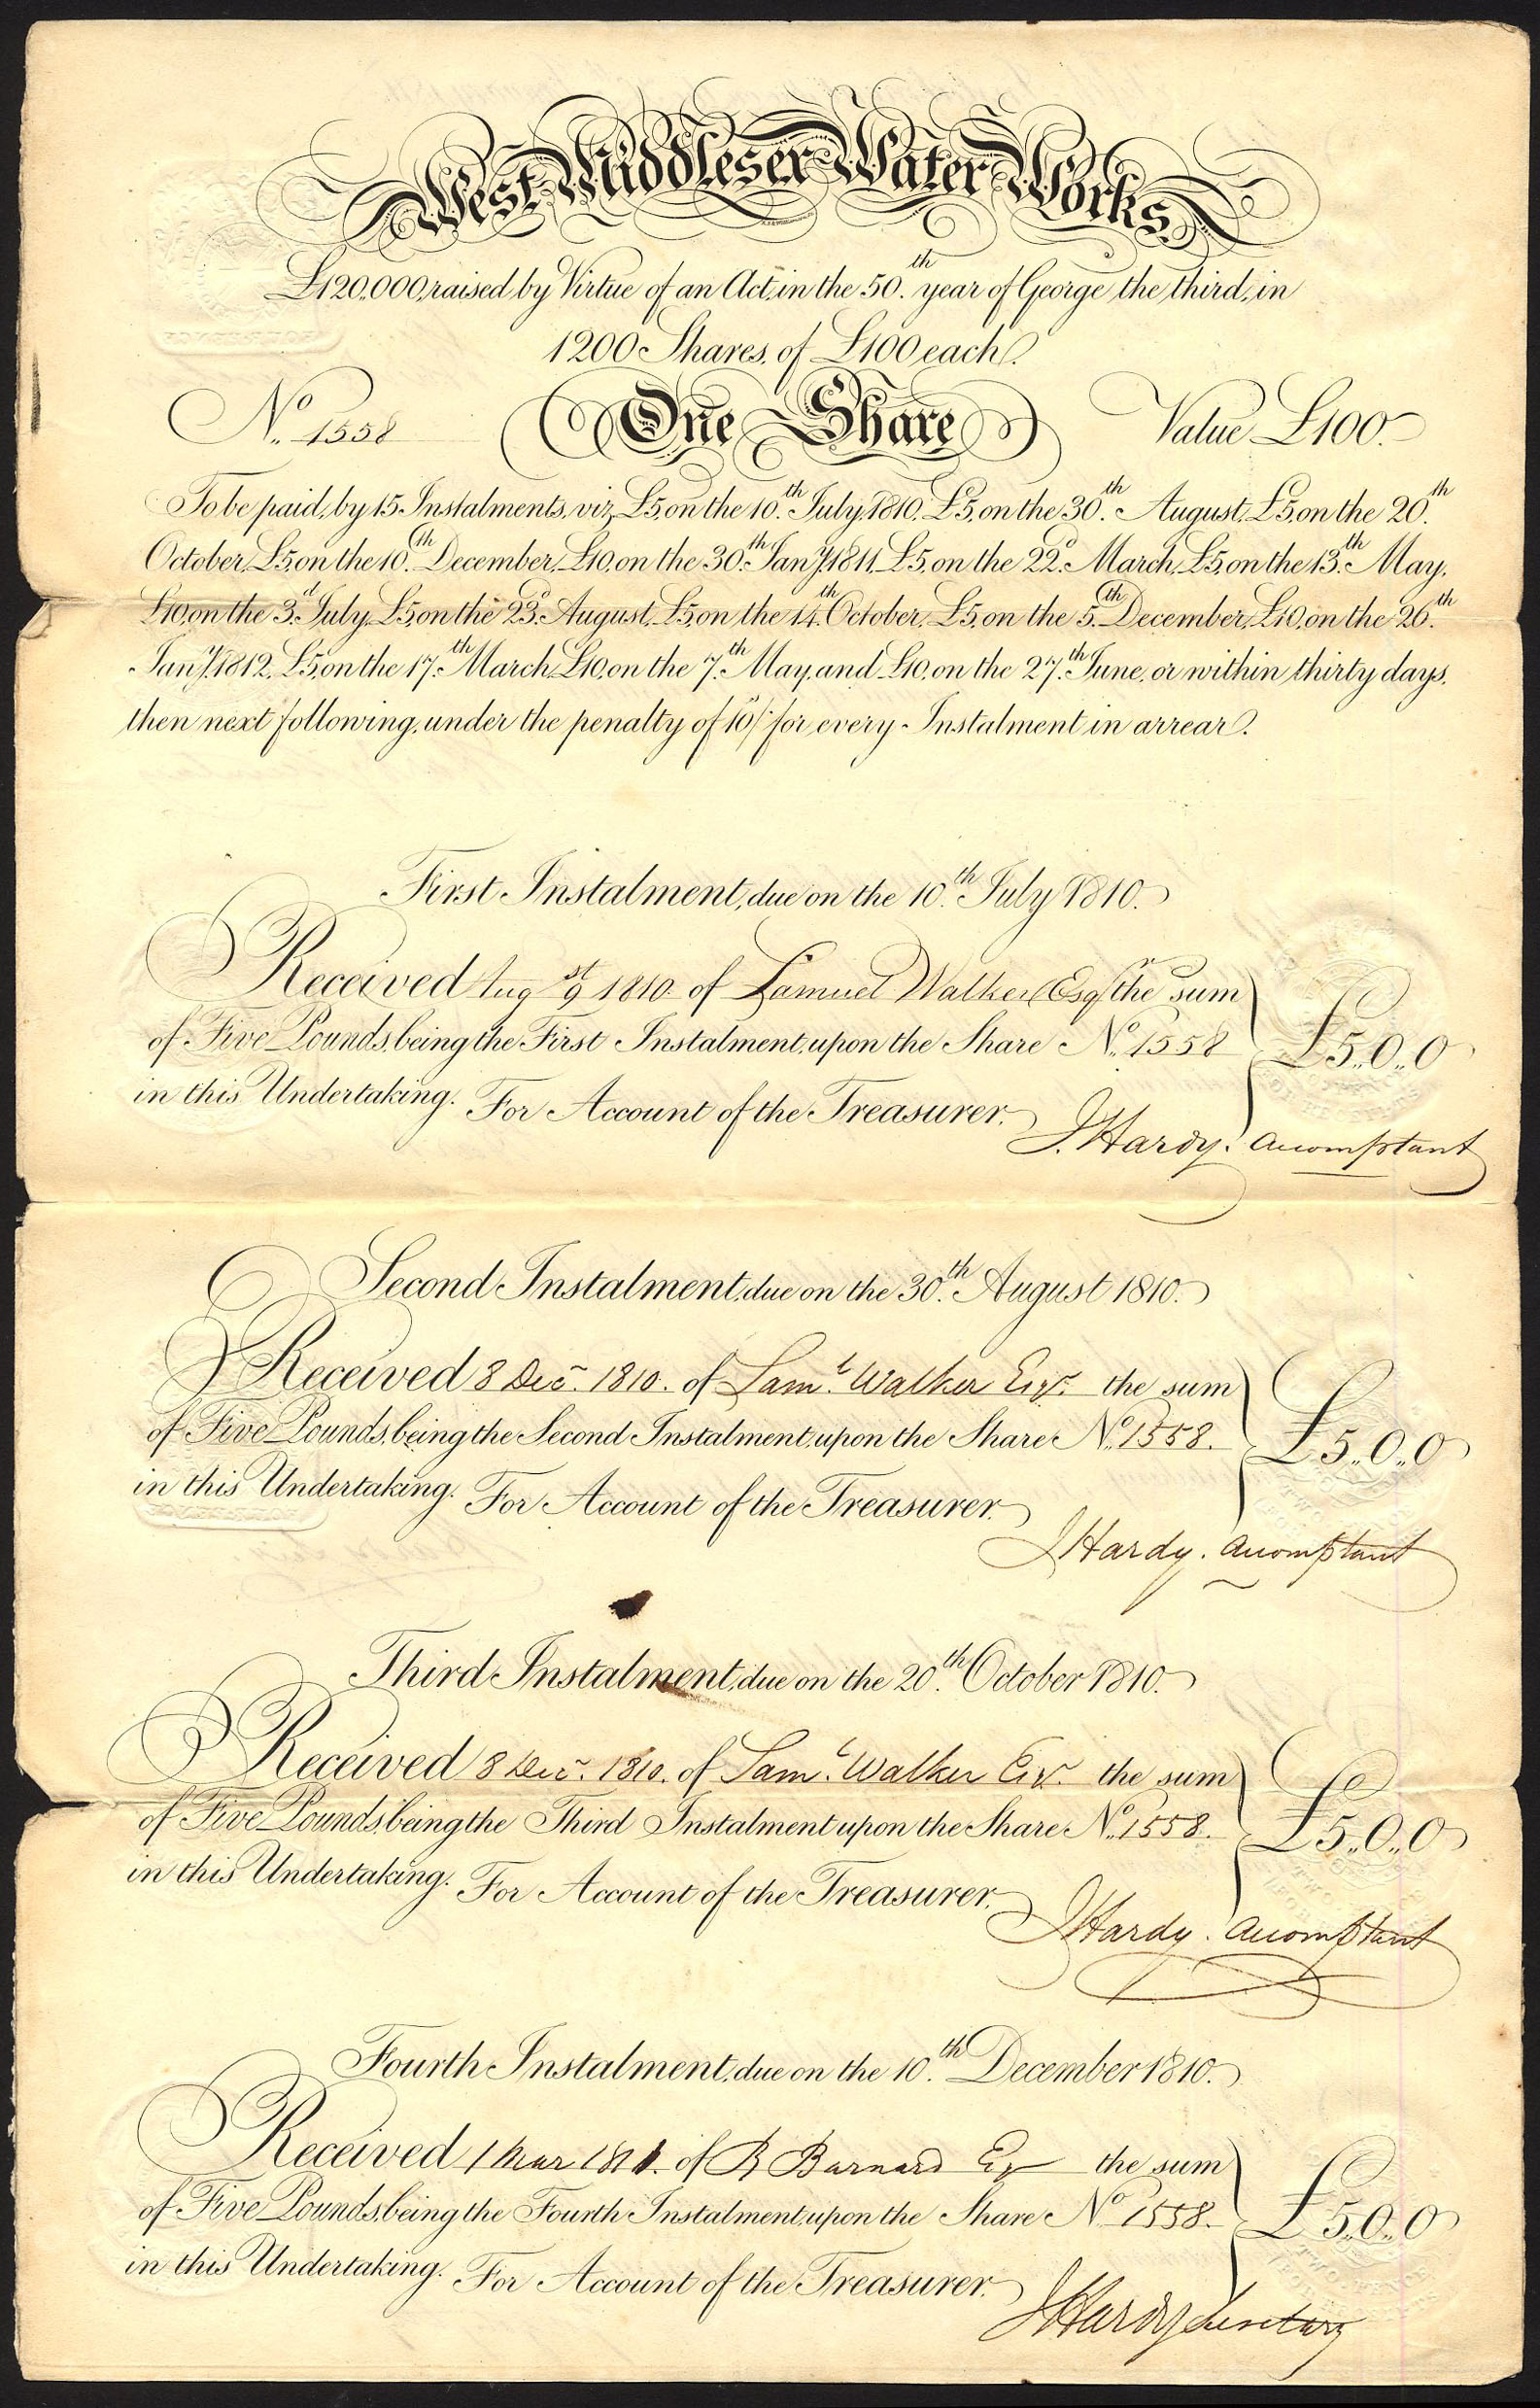 West Middlesex Water Works
£120,000, raised by Virtue of an Act, in the 50.th year of George the third, in
1200 Shares, of £100 each.
No. 1558 One Share Value £100.
To be paid, by 15 Instalments, viz. £5, on the 10.th July, 1810. £5, on the 30.th August, £5, on the 20.th
October, £5, on the 10.th December, £10, on the 30.th Jan.y 1811, £5, on the 22.d March, £5, on the 13.th May,
£10, on the 3.d July, £5, on the 23.d August, £5, on the 14.th October, £5, on the 5.th December, £10, on the 26.th
Jan.y 1812, £5, on the 17.th March, £10, on the 7.th May, and £10, on the 27.th June, or within thirty days,
then next following, under the penalty of 10/- for every Instalment in arrear.
First Instalment, due on the 10.th July 1810.
Received Aug st 9 1810 of Samuel Walker Esqr the sum
of Five Pounds, being the First Instalment, upon the Share No. 1558 £5,,0,,0
in this Undertaking. For Account of the Treasurer.
J. Hardy. Accomptant
Second Instalment, due on the 30.th August 1810.
Received 8 Dec.r 1810. of Sam.l Walker Esqr. the sum
of Five Pounds, being the Second Instalment, upon the Share No. 1558. £5,,0,,0
in this Undertaking. For Account of the Treasurer.
J Hardy. Accomptant
Third Instalment, due on the 20.th October 1810.
Received 8 Dec.r 1810. of Sam.l Walker Esqr. the sum
of Five Pounds, being the Third Instalment upon the Share No. 1558. £5,,0,,0
in this Undertaking. For Account of the Treasurer.
J Hardy. Accomptant
Fourth Instalment, due on the 10.th December 1810.
Received 1 Mar 1811. of R Barnard Esqr the sum
of Five Pounds, being the Fourth Instalment, upon the Share No. 1558. £5,,0,,0
in this Undertaking. For Account of the Treasurer.
J Hardy Secretary